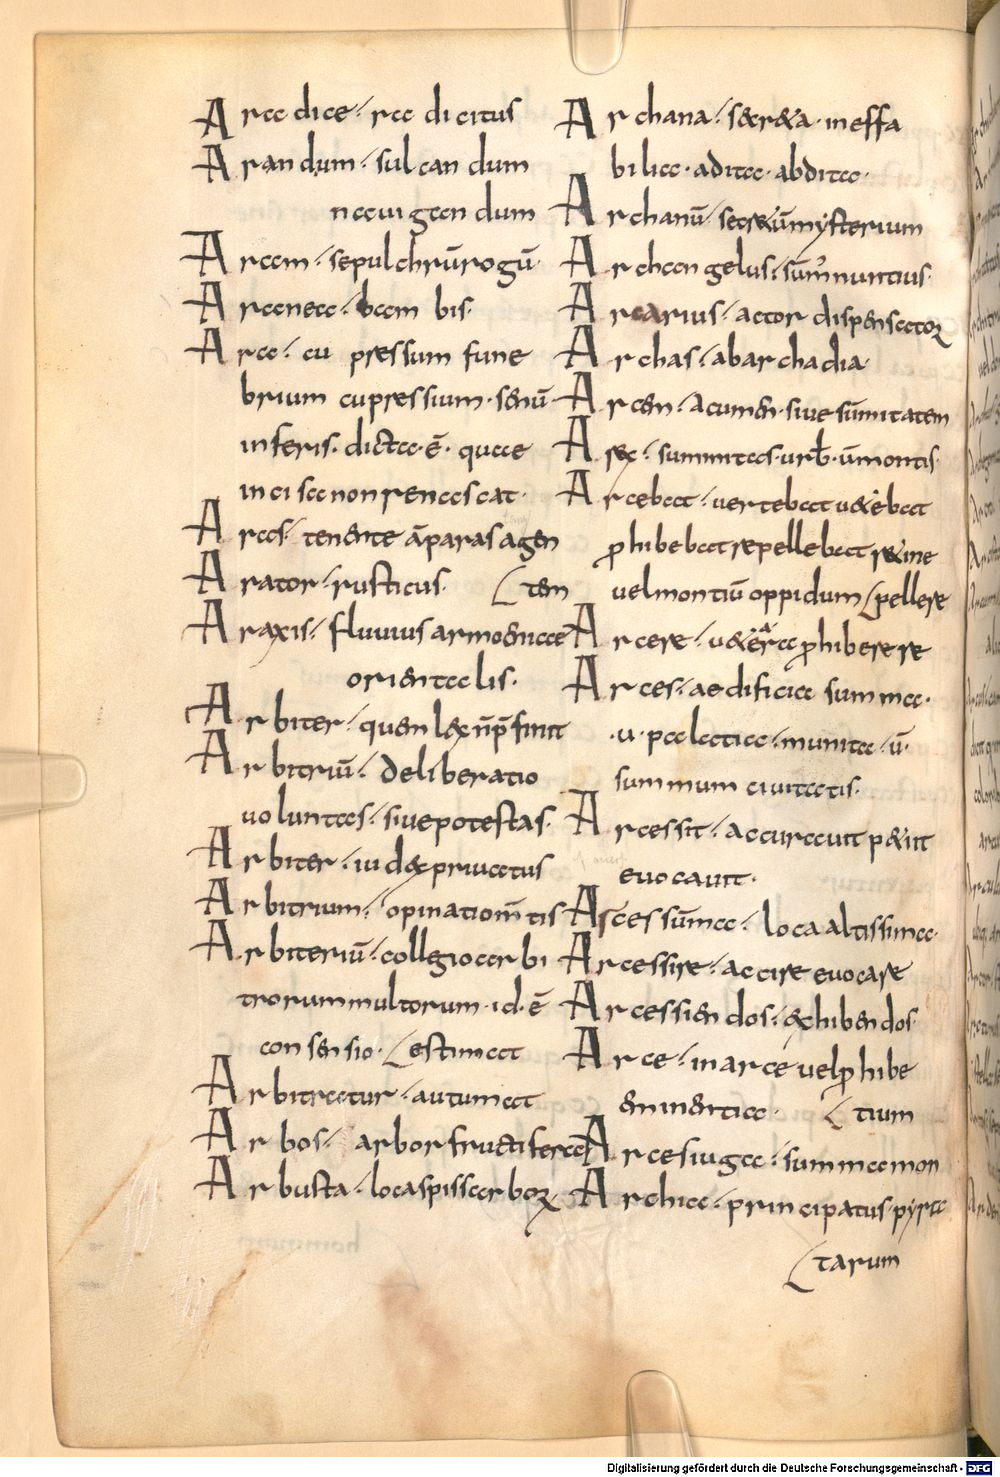 Aradice / radicitus
Arandum / sulcandum
nauigandum
Aram / sepulchrū rogū
Aranea / bam bis
Ara / cu pressum fune
brium cupressium · senū
inferis · dicta · ē · quae
incisa non renascat ·
Aras / tenente āparas agen
Arator / rusticus · tem
Araxis / fluuius armoeniae
orientalis ·
Arbiter / quem lex
Arbitriū / deliberatio
voluntas / siue potestas ·
Arbiter / iudex priuatus
Arbitrium / opinationē tis
Arbiteriū / collegio arbi
trorum multorum · id · ē
consensio · estimat
Arbitratur / autumat
Arbos / arbor fructifera
Arbusta / loca spissa arboꝝ
Archana / secreta · ineffa
bilia · adita · abdita ·
Archanū / secretū mysterium
Archangelus / sūmnuntius
Arcarius / actor dispensatoꝝ
Archas / ab archadia
Arcem / acumen · siue sūmitatem
Arx / summitas · urb · ū montis
Arcebat / vertebat uetebat
ꝓhibebat repellebat retine
uel montiū oppidum pellere
Arcere / ꝓhibere re
Arces / aedificia summa ·
· u · palatia / munita / ū ·
summum ciuitatis ·
Arcessit / accurauit petiit
euocauit ·
Arces sūma / loca altissima
Arcessire / accire euocare
Arcessiendos / exhibendos
Arce / in arce uel ꝓhibe
eminentia · tium
Arcesiuga / summa mon
Archia / principatus pyra
tarum
Digitalisierung gefördert durch die Deutsche Forschungsgemeinschaft - DFG